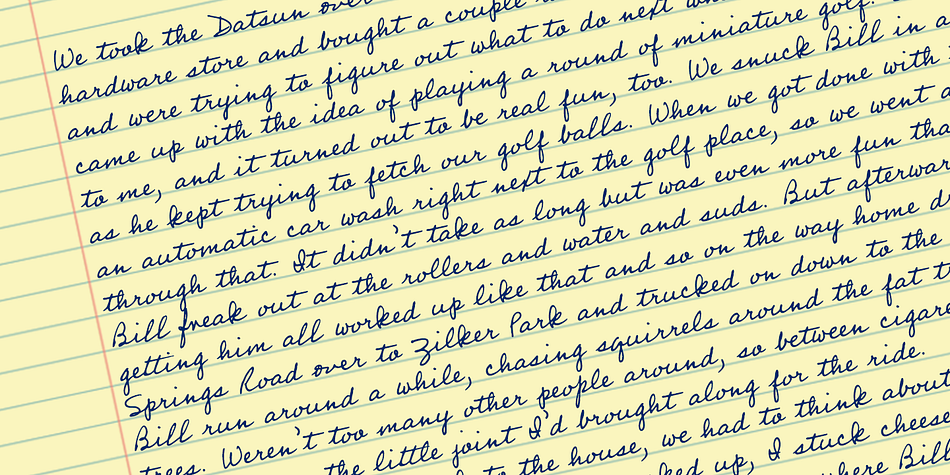 We took the Datsun over
hardware store and bought a couple
and were trying to figure out what to do next
came up with the idea of playing a round of miniature golf.
to me, and it turned out to be real fun, too. We snuck Bill in a
as he kept trying to fetch our golf balls. When we got done with
an automatic car wash right next to the golf place, so we went a
through that. It didn't take as long but was even more fun tha
Bill freak out at the rollers and water and suds. But afterwar
getting him all worked up like that and so on the way home d
Springs Road over to Zilker Park and trucked on down to the
Bill run around a while, chasing squirrels around the fat t
trees. Weren't too many other people around, so between cigare
the little joint I'd brought along for the ride.
to the house, we had to think about
ked up, I stuck chees
where Bill